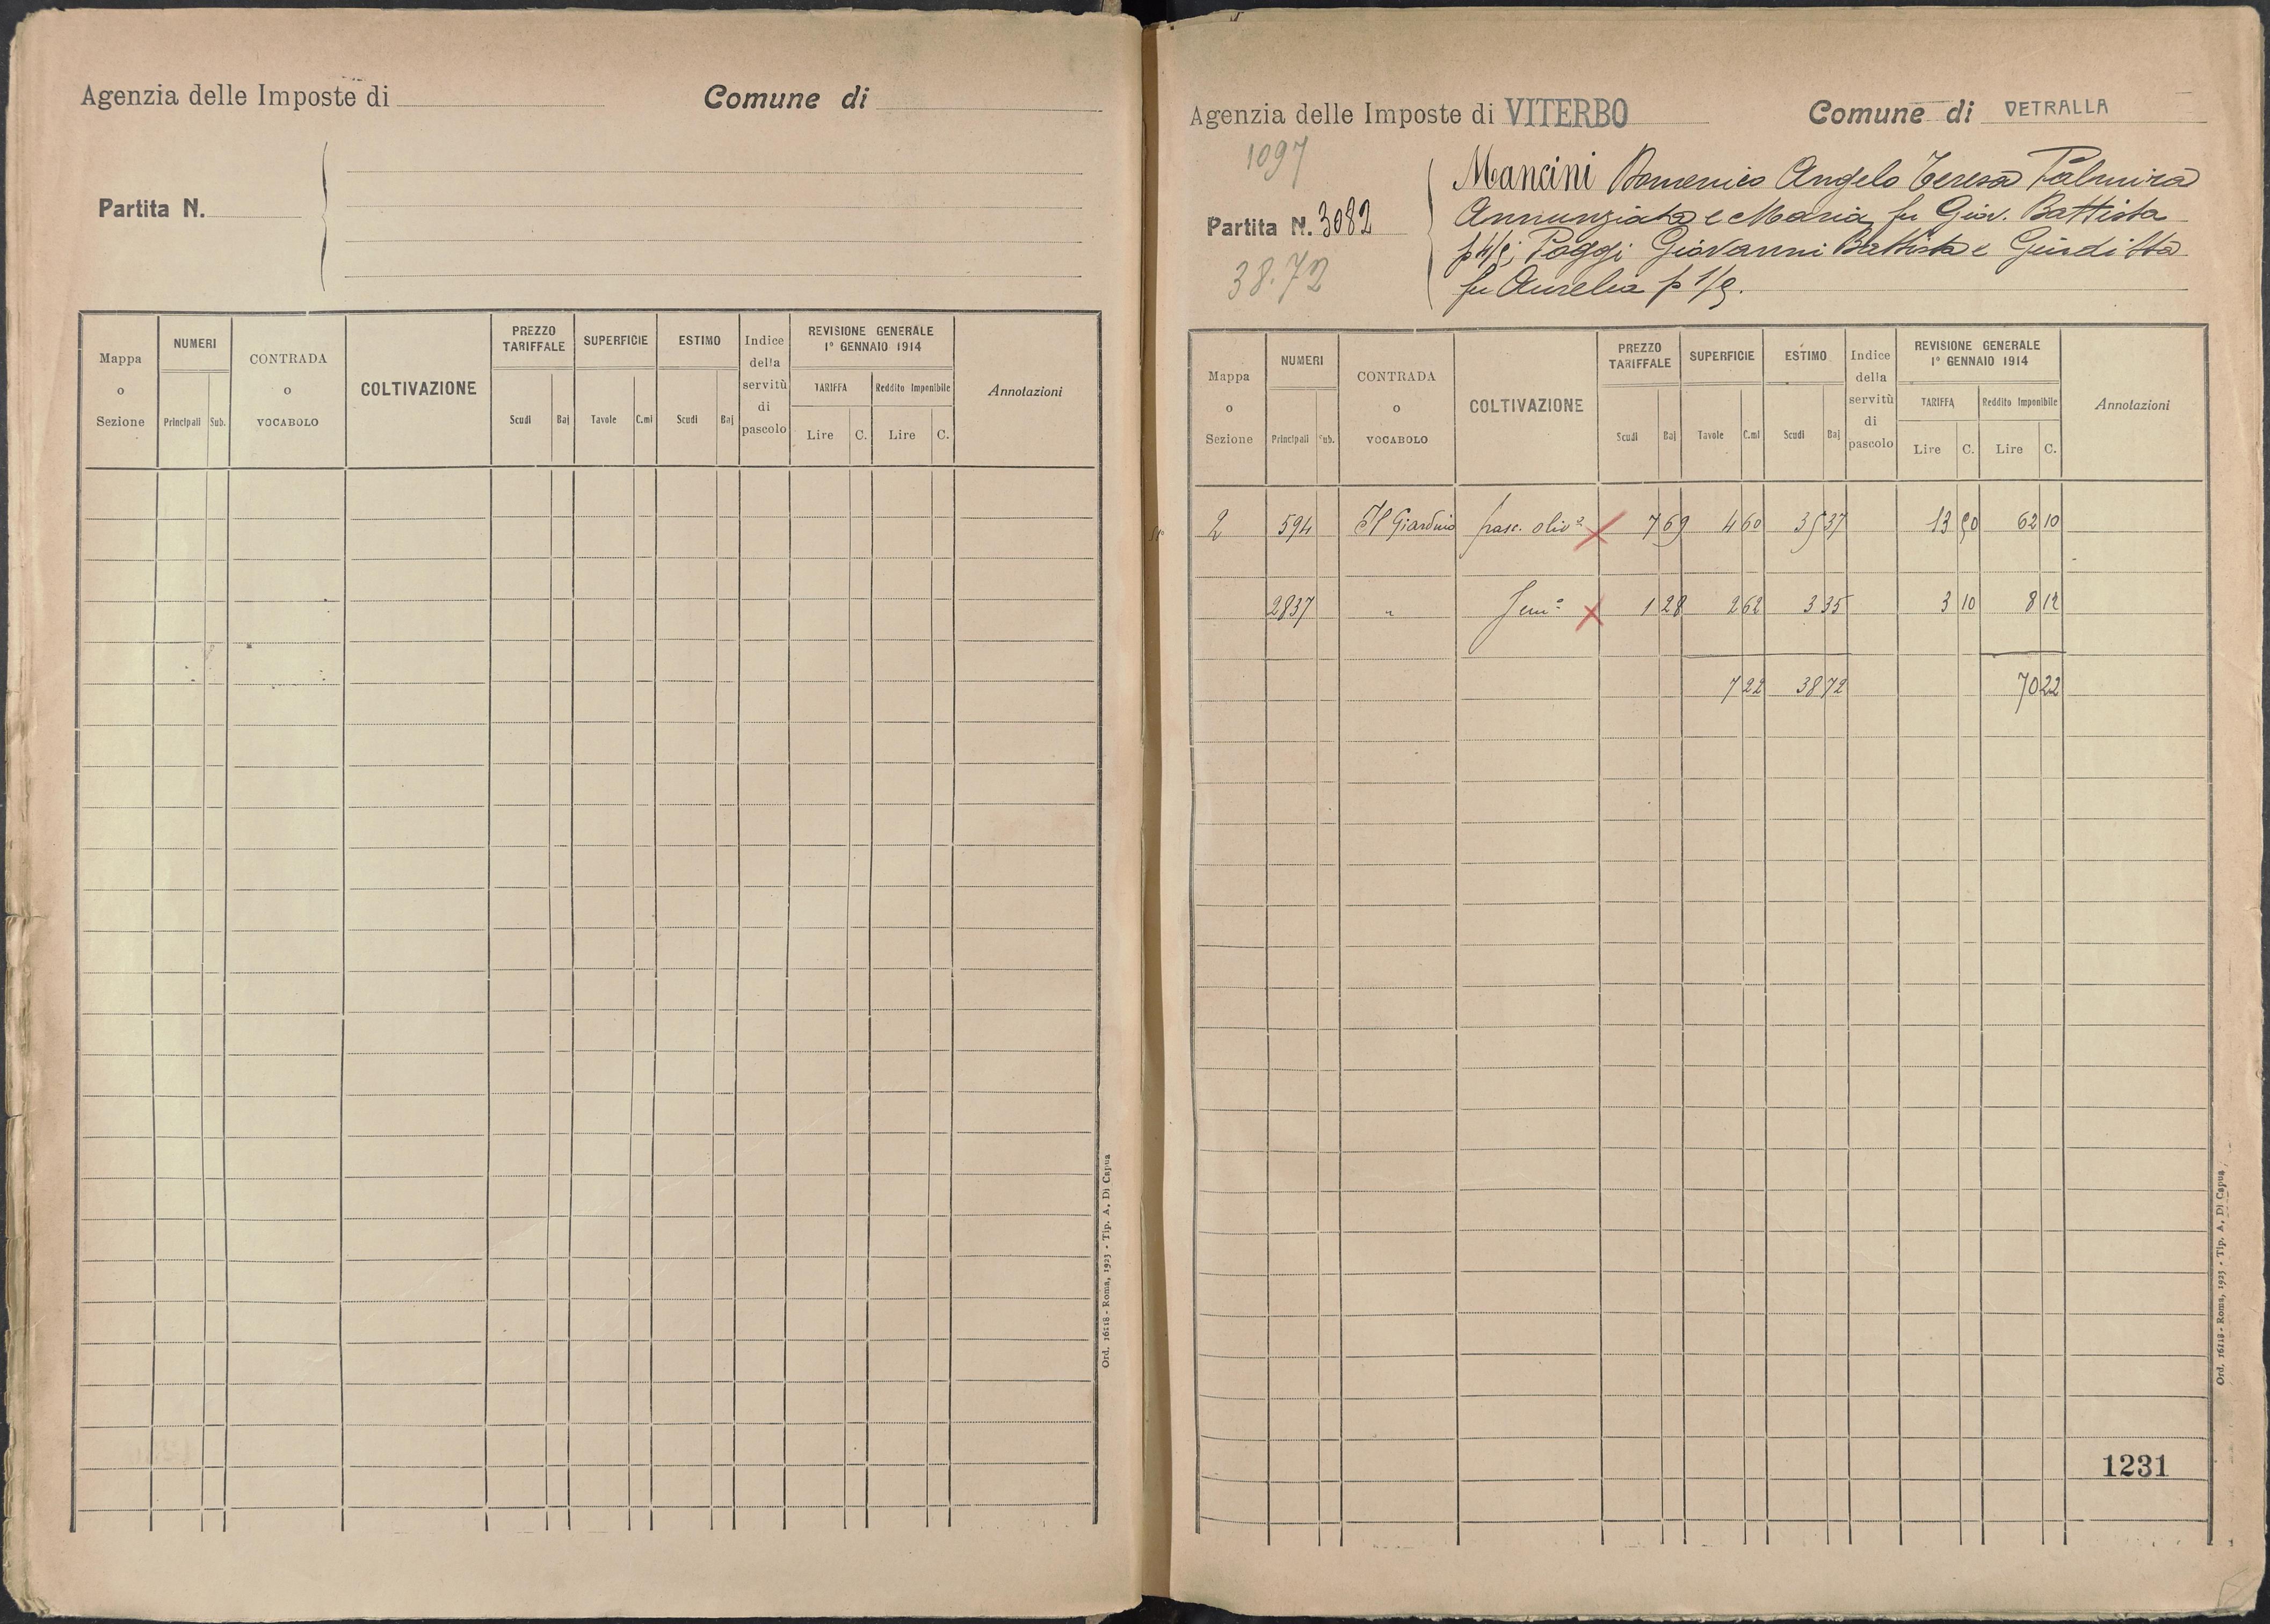 Agenzia delle Imposte di
Comune di
Partita N.
Mappa o Sezione
NUMERI
Principali Sub.
CONTRADA o VOCABOLO
COLTIVAZIONE
PREZZO TARIFFALE
Scudi Baj
SUPERFICIE
Tavole C.mi
ESTIMO
Scudi Baj
Indice della servitù di pascolo
REVISIONE GENERALE
1° GENNAIO 1914
TARIFFA Reddito Imponibile
Lire C. Lire C.
Annotazioni
Ord. 16118 - Roma, 1923 - Tip. A. Di Capua
Agenzia delle Imposte di VITERBO
Comune di VETRALLA
1097
Partita N. 3082
38.72
Mancini Domenico Angelo Teresa Palmira
Annunziata e Maria fu Giov. Battista
Poggi Giovanni Battista e Giuditta
fu Aurelia p 1/9.
Mappa o Sezione
NUMERI
Principali Sub.
CONTRADA o VOCABOLO
COLTIVAZIONE
PREZZO TARIFFALE
Scudi Baj
SUPERFICIE
Tavole C.mi
ESTIMO
Scudi Baj
Indice della servitù di pascolo
REVISIONE GENERALE
1° GENNAIO 1914
TARIFFA Reddito Imponibile
Lire C. Lire C.
Annotazioni
2 594 Il Giardino pasc. oliv° 7 69 4 60 35 37 13 50 62 10
2837 " Sem° 1 28 2 62 3 35 3 10 8 12
7 22 38 72 70 22
1231
Ord. 16118 - Roma, 1923 - Tip. A. Di Capua